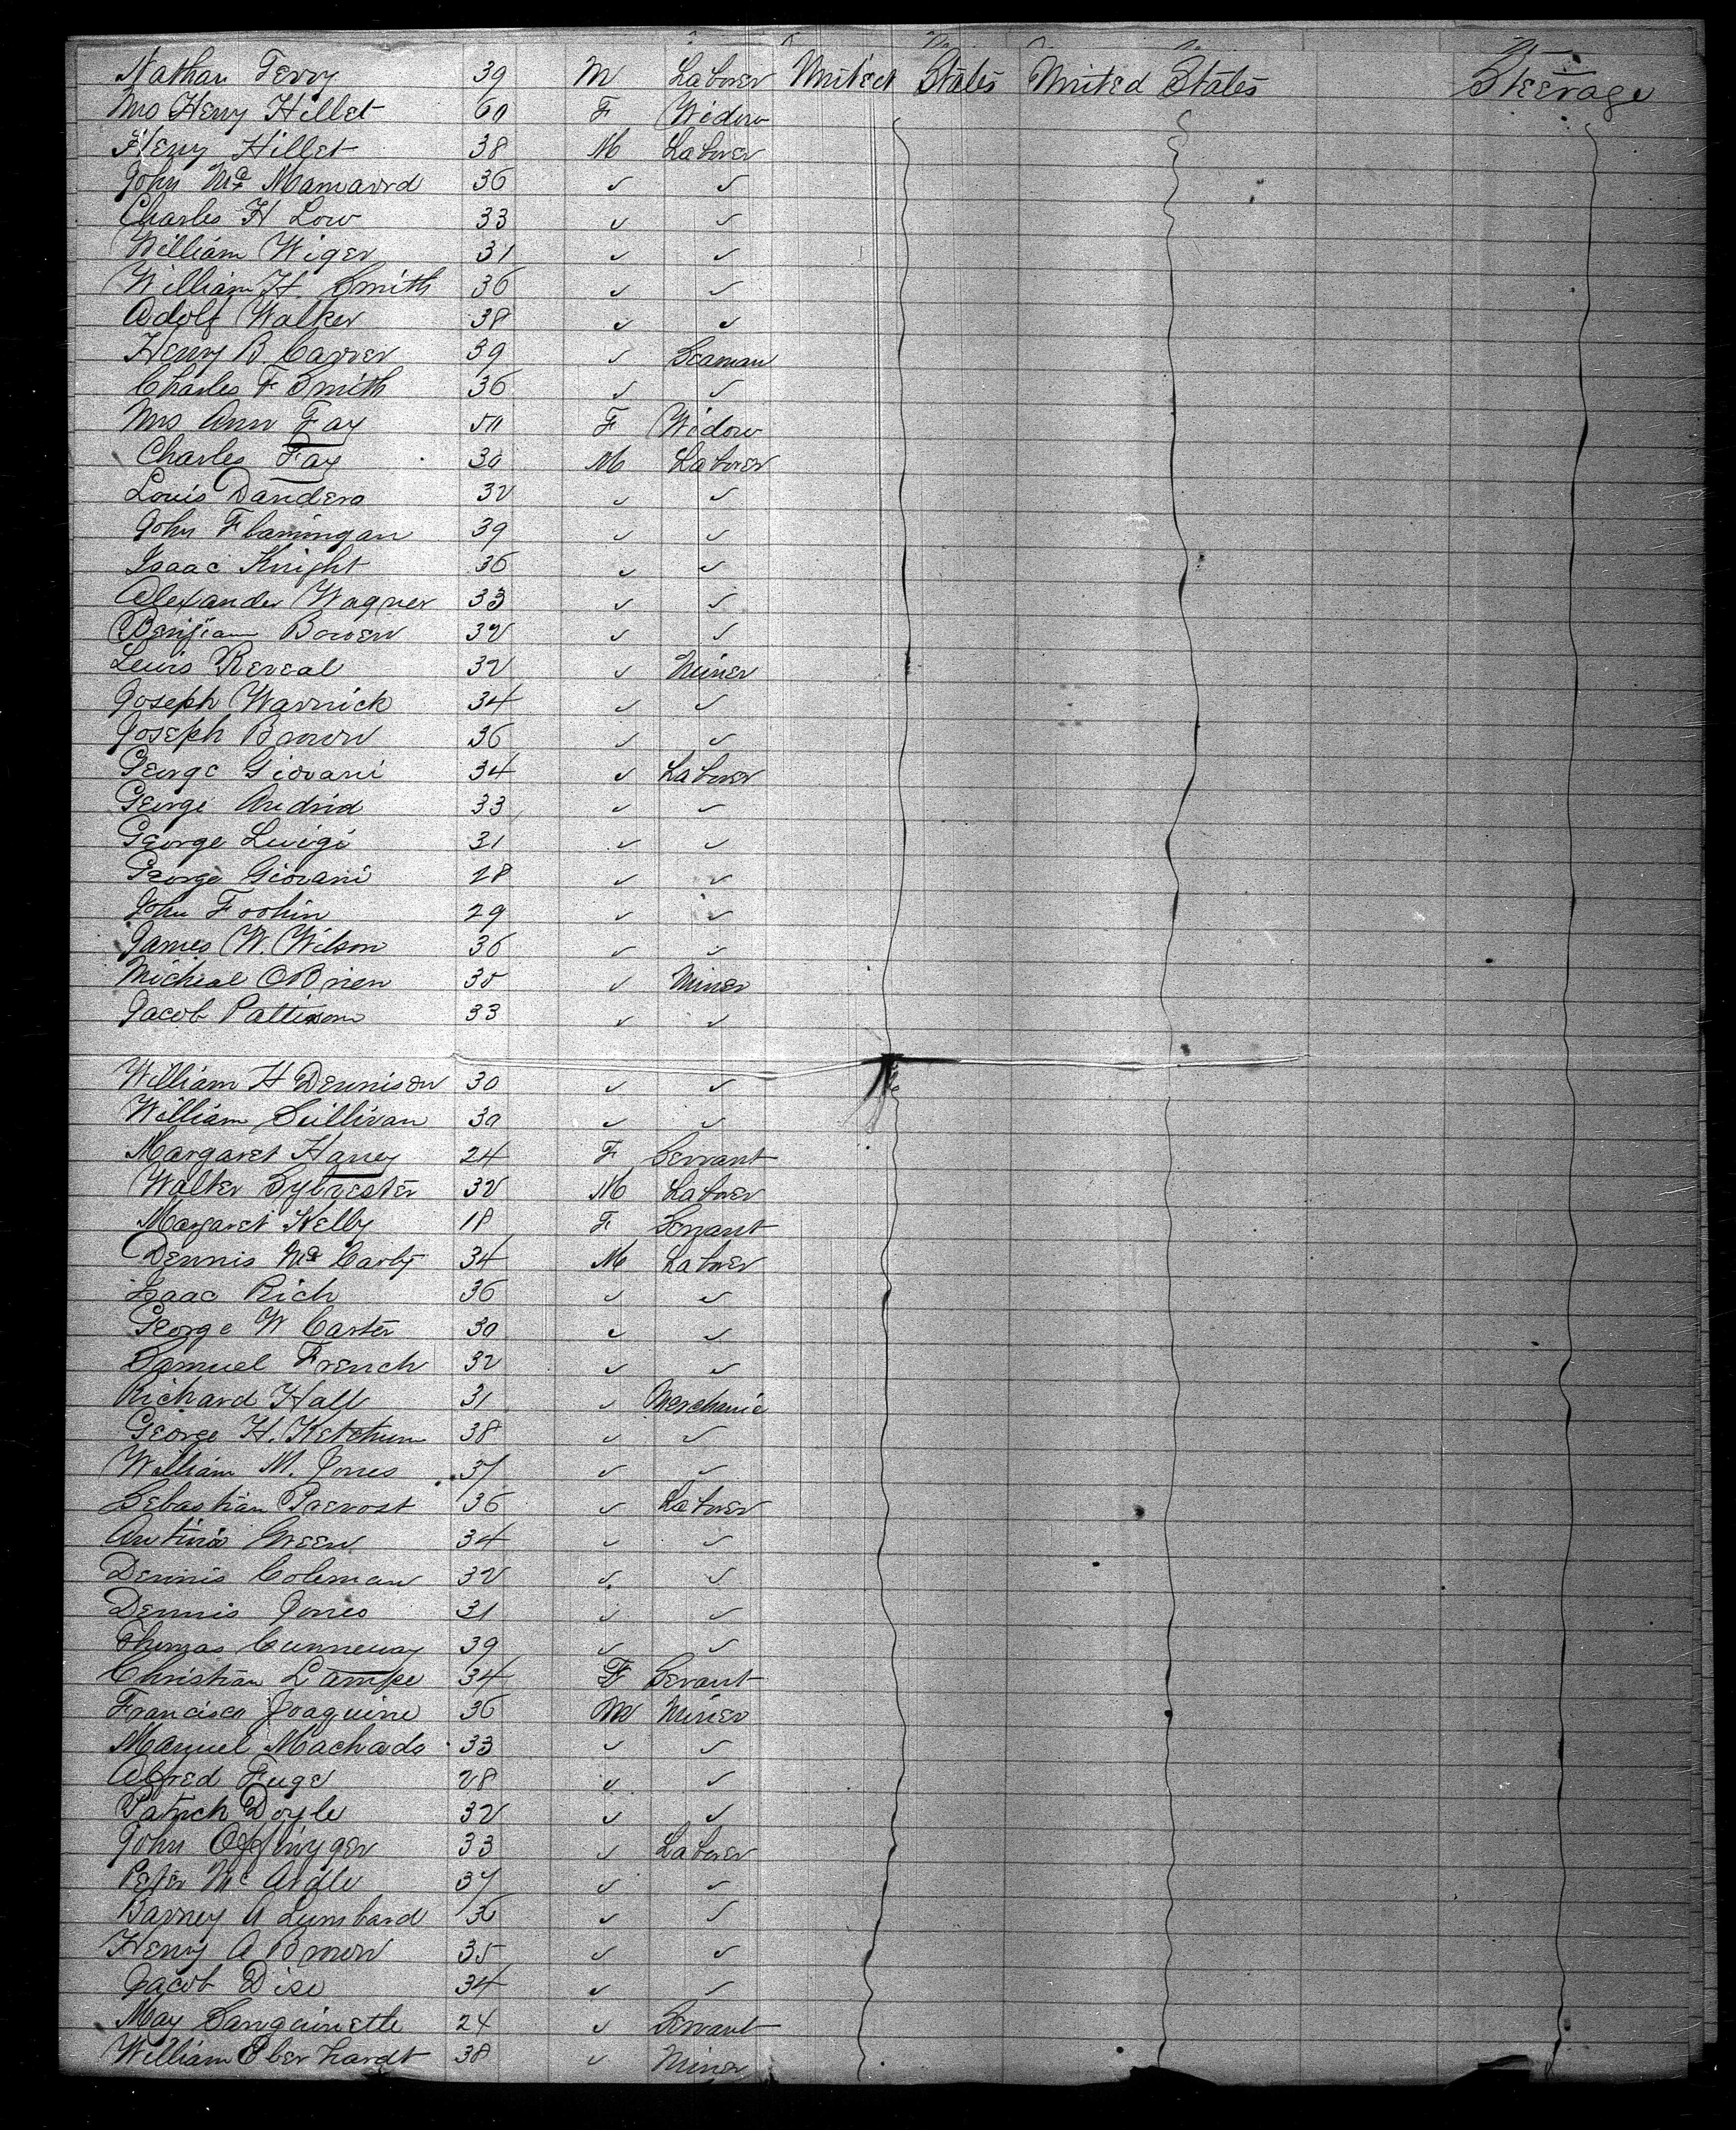 Nathan Terry 39 M Laborer United States United States Steerage
Mrs Henry Hillet 60 F Widow
Henry Hillet 38 M Laborer
John Mc Mamavrd 36 ✓ ✓
Charles H Low 33 ✓ ✓
William Wiger 31 ✓ ✓
William H. Smith 36 ✓ ✓
Adolf Walker 38 ✓ ✓
Henry B. Carver 39 ✓ Seaman
Charles F Smith 36 ✓ ✓
Mrs Ann Fay 50 F Widow
Charles Fay 30 M Laborer
Louis Dandero 32 ✓ ✓
John Flamingan 39 ✓ ✓
Isaac Knight 36 ✓ ✓
Alexander Wagner 33 ✓ ✓
Benjiam Bowen 32 ✓ ✓
Lewis Reveal 32 ✓ Miner
Joseph Warnick 34 ✓ ✓
Joseph Brown 36 ✓ ✓
George Giovani 34 ✓ Laborer
George 33 ✓ ✓
George Luigi 31 ✓ ✓
George Giovani 28 ✓ ✓
John Foohin 29 ✓ ✓
James W. Wilson 36 ✓ ✓
Micheal OBrien 35 ✓ Miner
Jacob Pattison 33 ✓ ✓
William H Dennison 30 ✓ ✓
William Sullivan 30 ✓ ✓
Margaret Haney 24 F Servant
Walter Sylvester 32 M Laborer
Margaret Kelly 18 F Servant
Dennis Mc Carty 34 M Laborer
Isaac Rich 36 ✓ ✓
George W Carter 30 ✓ ✓
Samuel French 32 ✓ ✓
Richard Hall 31 ✓ Merchanic
George H. Ketchum 38 ✓ ✓
William M. Jones 37 ✓ ✓
Sebastian Prevost 36 ✓ Laborer
Green 34 ✓ ✓
Dennis Coleman 32 ✓ ✓
Dennis Jones 31 ✓ ✓
Thomas Cunneway 39 ✓ ✓
Christian Lampe 34 F Servant
Francisco Joaquine 36 M Miner
Manuel Machado 33 ✓ ✓
Alfred Fuge 28 ✓ ✓
Patrick Doyle 32 ✓ ✓
John Offinyger 33 ✓ Laborer
Peter Mc Ardle 37 ✓ ✓
Barney A Lumbard 36 ✓ ✓
Henry A Brown 35 ✓ ✓
Jacob Dise 34 ✓ ✓
May Sanguinette 24 ✓ Servant
William Eberhardt 38 ✓ Miner